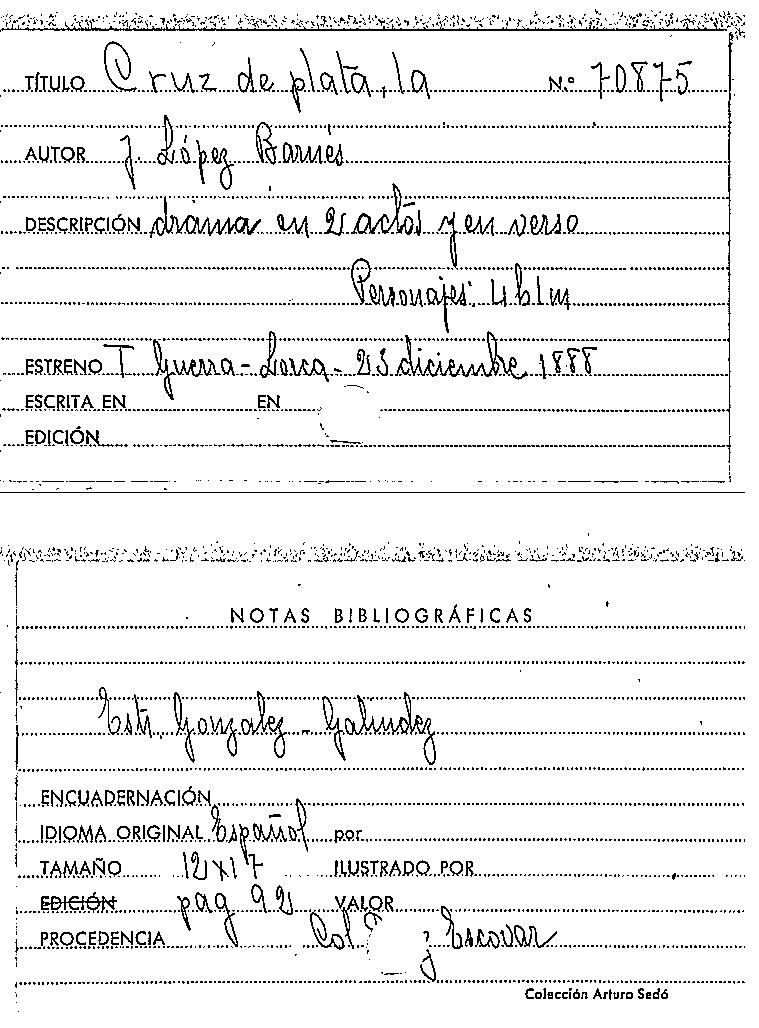 TÍTULO Cruz de plata, la N.º 70875
AUTOR J. López Barnés
DESCRIPCIÓN drama en 2 actos y en verso
Personajes: 4 h 1 m
ESTRENO T Guerra - Lorca - 23 diciembre 1888
ESCRITA EN EN
EDICIÓN
NOTAS BIBLIOGRÁFICAS
Estr. Gonzalez - Galindez
ENCUADERNACIÓN
IDIOMA ORIGINAL Español por
TAMAÑO 12x17 ILUSTRADO POR
EDICIÓN pag 92 VALOR
PROCEDENCIA Col y Escovar
Colección Arturo Sedó